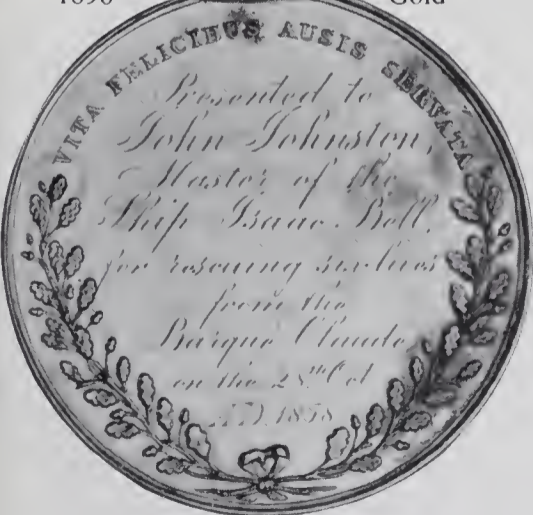 1090 Gold
VITA FELICIBUS AUSIS SERVATA
Presented to
John Johnston,
Master of the
Ship Isaac Bell,
for rescuing six lives
from the
Barque Claude
on the 28th Oct
A.D. 1858